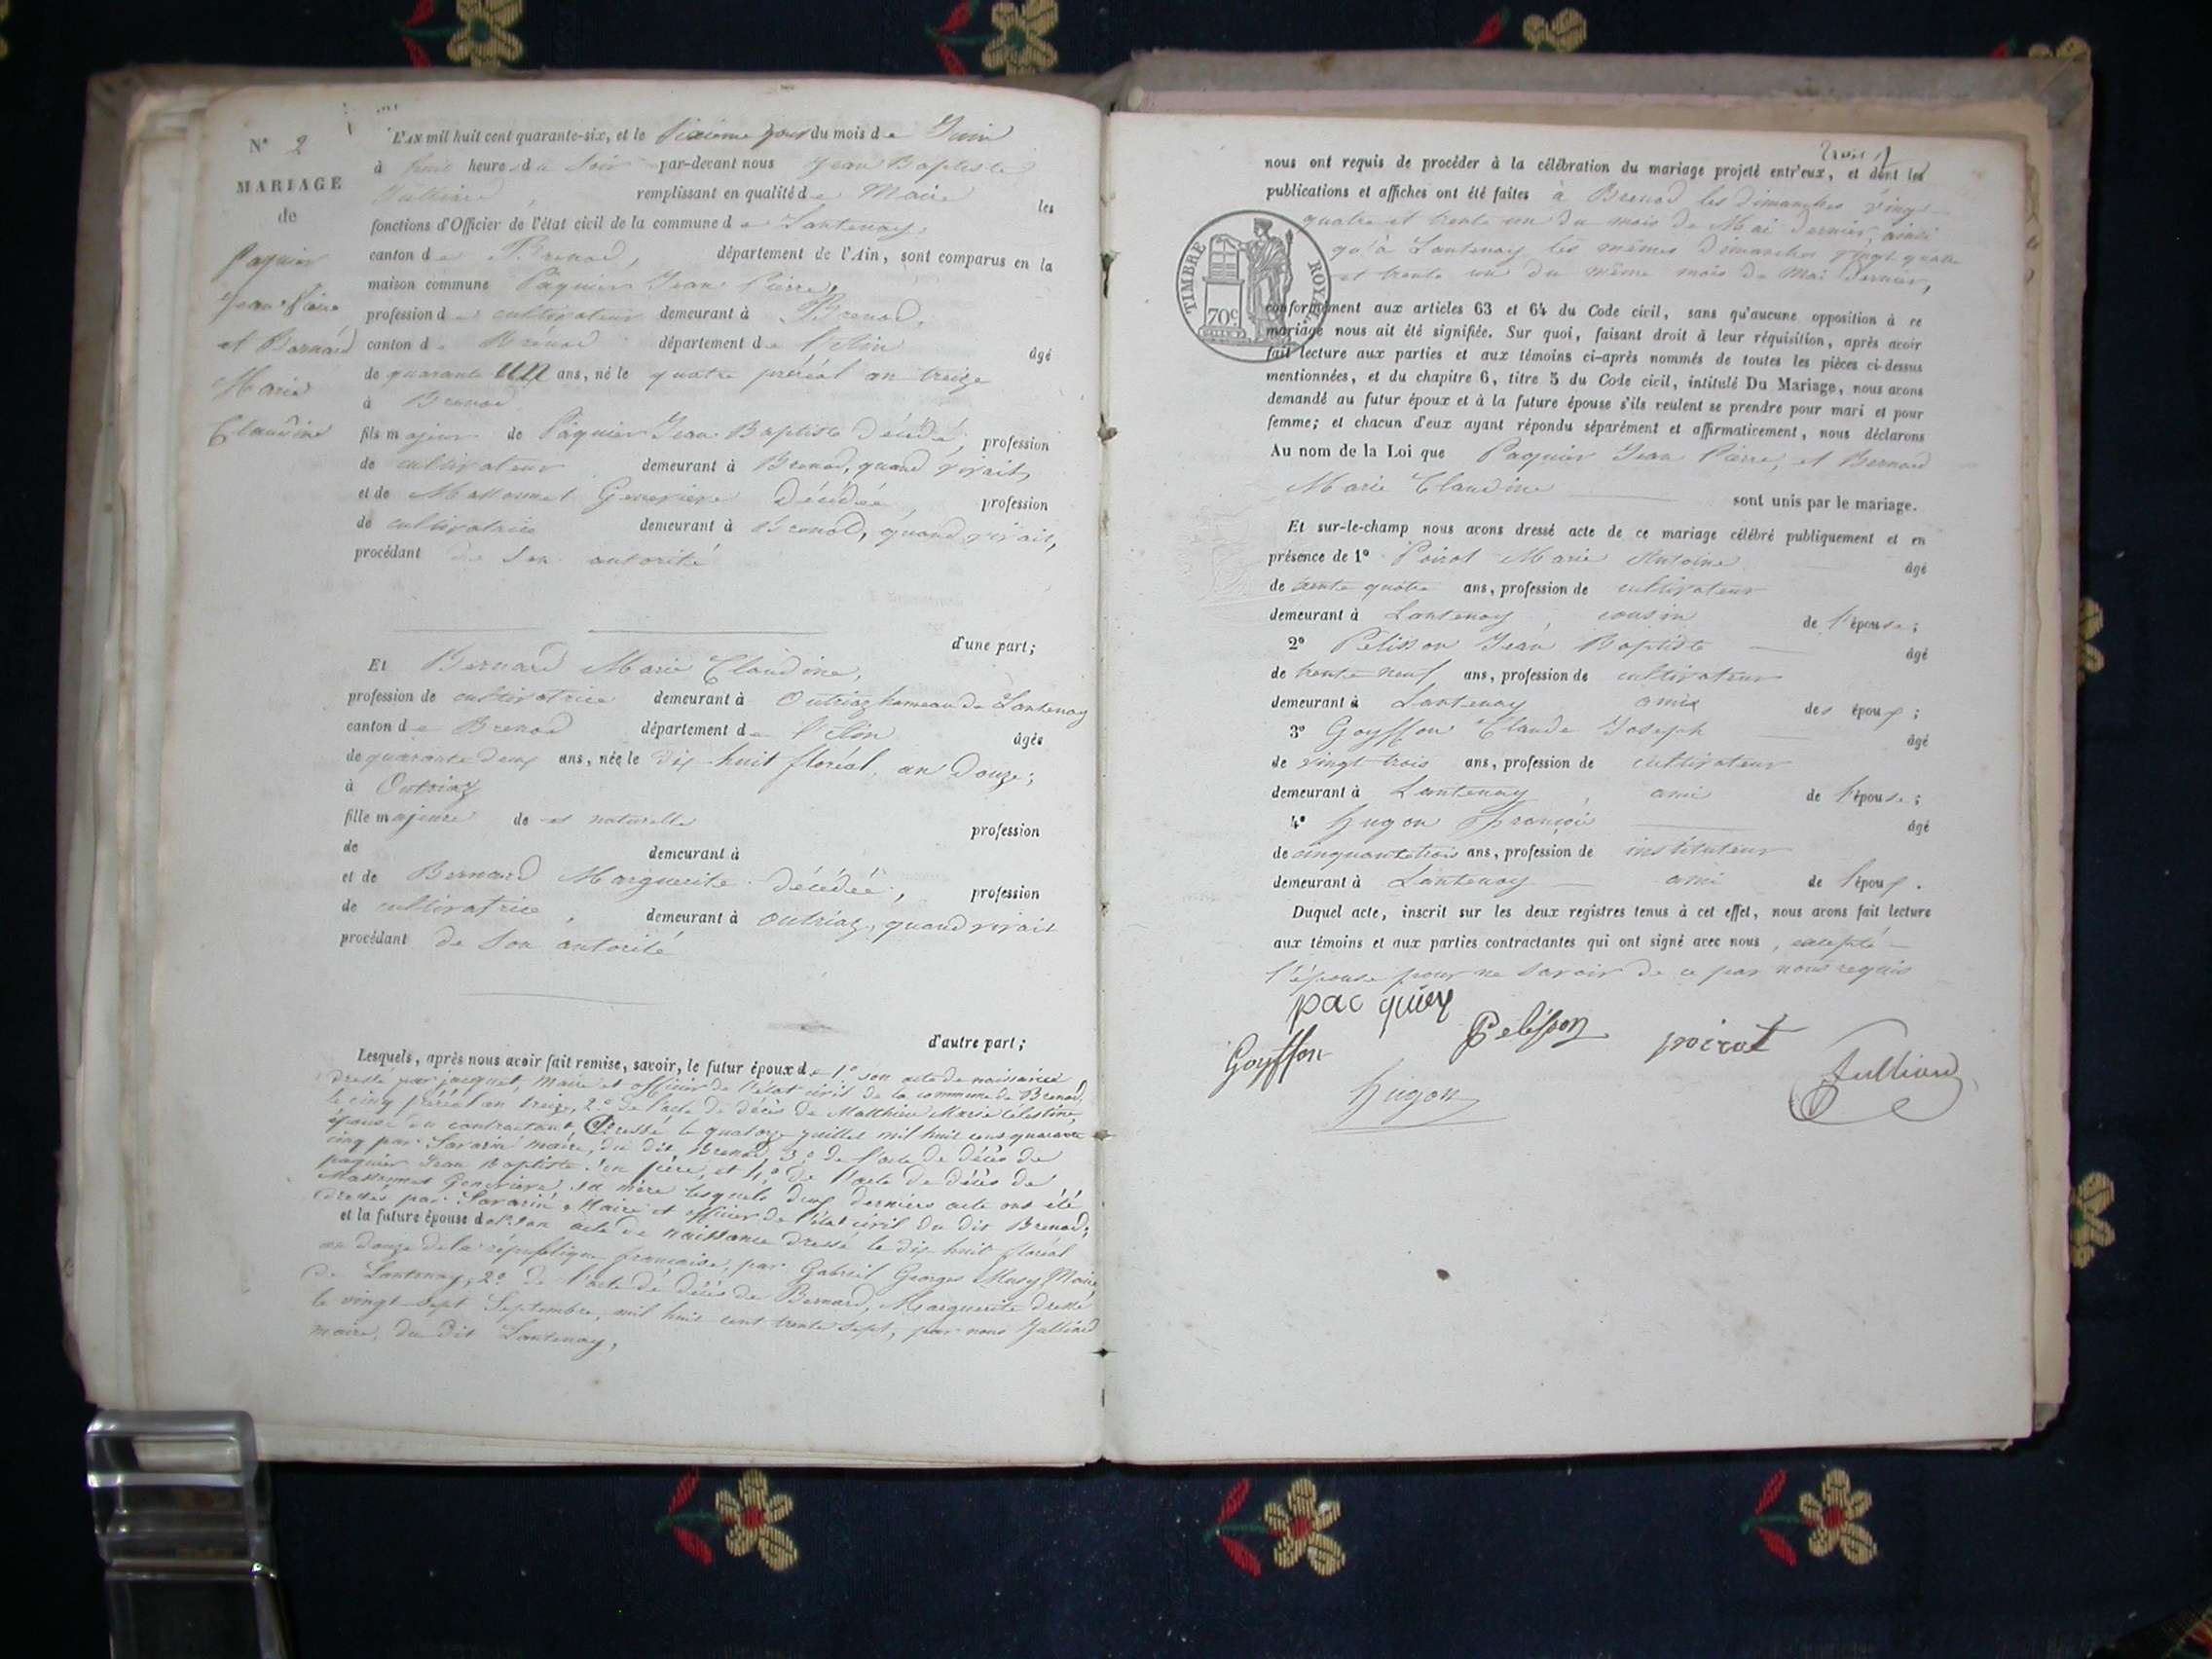 N° 2
MARIAGE
de
Paquier
Jean Pierre
et Bernard
Marie
Claudine
L'AN mil huit cent quarante-six, et le sixième jour du mois de Juin
à huit heures du soir par-devant nous Jean Baptiste
Jullien, remplissant en qualité de Maire les
fonctions d'Officier de l'état civil de la commune de Lantenay,
canton de Brenod, département de l'Ain, sont comparus en la
maison commune Paquier Jean Pierre,
profession de cultivateur demeurant à Brenod,
canton de Brénod département de l'Ain âgé
de quarante un ans, né le quatre préréal an treize
à Brenod
fils majeur de Paquier Jean Baptiste décédé, profession
de cultivateur demeurant à Brenod, quand vivait,
et de Massonnet Geneviève décédée profession
de cultivatrice demeurant à Brenod, quand vivait,
procédant de son autorité
d'une part;
Et Bernard Marie Claudine,
profession de cultivatrice demeurant à Outriaz hameau de Lantenay
canton de Brenod département de l'Ain âgée
de quarante deux ans, née le dix-huit floréal, an douze;
à Outriaz
fille majeure de et naturelle profession
de demeurant à
et de Bernard Marguerite décédée, profession
de cultivatrice, demeurant à Outriaz, quand vivait
procédant de son autorité
d'autre part;
Lesquels, après nous avoir fait remise, savoir, le futur époux de 1° son acte de naissance
dressé par jacquet, maire et officier de l'état civil de la commune de Brenod,
le cinq préréal an treize, 2° de l'acte de décès de Matthieu Marie Célestine,
épouse du contractant, dressé le quatorze juillet mil huit cent quarante
cinq par Savarin maire, du dit Brenod, 3° de l'acte de décès de
paquier Jean Baptiste son père, et 4° de l'acte de décès de
Massonnet Geneviève, sa mère lesquels deux derniers acte ont été
dressés par Savarin, Maire et officier de l'état civil du dit Brenod;
et la future épouse de 1° son acte de naissance dressé le dix huit floréal
an douze de la république française, par Gabriel Georges Musy Maire
de Lantenay, 2° de l'acte de décès de Bernard, Marguerite dressé
le vingt-sept Septembre, mil huit cent trente sept, par nous Jullien
maire, du dit Lantenay,
nous ont requis de procéder à la célébration du mariage projeté entr'eux, et dont les
publications et affiches ont été faites à Brenod les dimanches vingt
quatre et trente un du mois de Mai dernier, ainsi
qu'à Lantenay les mêmes dimanches vingt quatre
et trente un du même mois de Mai dernier,
TIMBRE ROYAL
70c
conformément aux articles 63 et 64 du Code civil, sans qu'aucune opposition à ce
mariage nous ait été signifiée. Sur quoi, faisant droit à leur réquisition, après avoir
fait lecture aux parties et aux témoins ci-après nommés de toutes les pièces ci-dessus
mentionnées, et du chapitre 6, titre 5 du Code civil, intitulé Du Mariage, nous avons
demandé au futur époux et à la future épouse s'ils veulent se prendre pour mari et pour
femme; et chacun d'eux ayant répondu séparément et affirmativement, nous déclarons
Au nom de la Loi que Paquier Jean Pierre, et Bernard
Marie Claudine sont unis par le mariage.
Et sur-le-champ nous avons dressé acte de ce mariage célébré publiquement et en
présence de 1° Poirot Marie Antoine âgé
de trente quatre ans, profession de cultivateur
demeurant à Lantenay, cousin de l'épouse;
2° Pelisson Jean Baptiste âgé
de trente neuf ans, profession de cultivateur
demeurant à Lantenay amis des époux;
3° Goyffon Claude Joseph âgé
de vingt trois ans, profession de cultivateur
demeurant à Lantenay, ami de l'épouse;
4° Hugon François âgé
de cinquante trois ans, profession de instituteur
demeurant à Lantenay ami de l'époux.
Duquel acte, inscrit sur les deux registres tenus à cet effet, nous avons fait lecture
aux témoins et aux parties contractantes qui ont signé avec nous, excepté
l'épouse pour ne savoir de ce par nous requis
pac quier
Goyffon Pelisson poirot
hugon Jullien